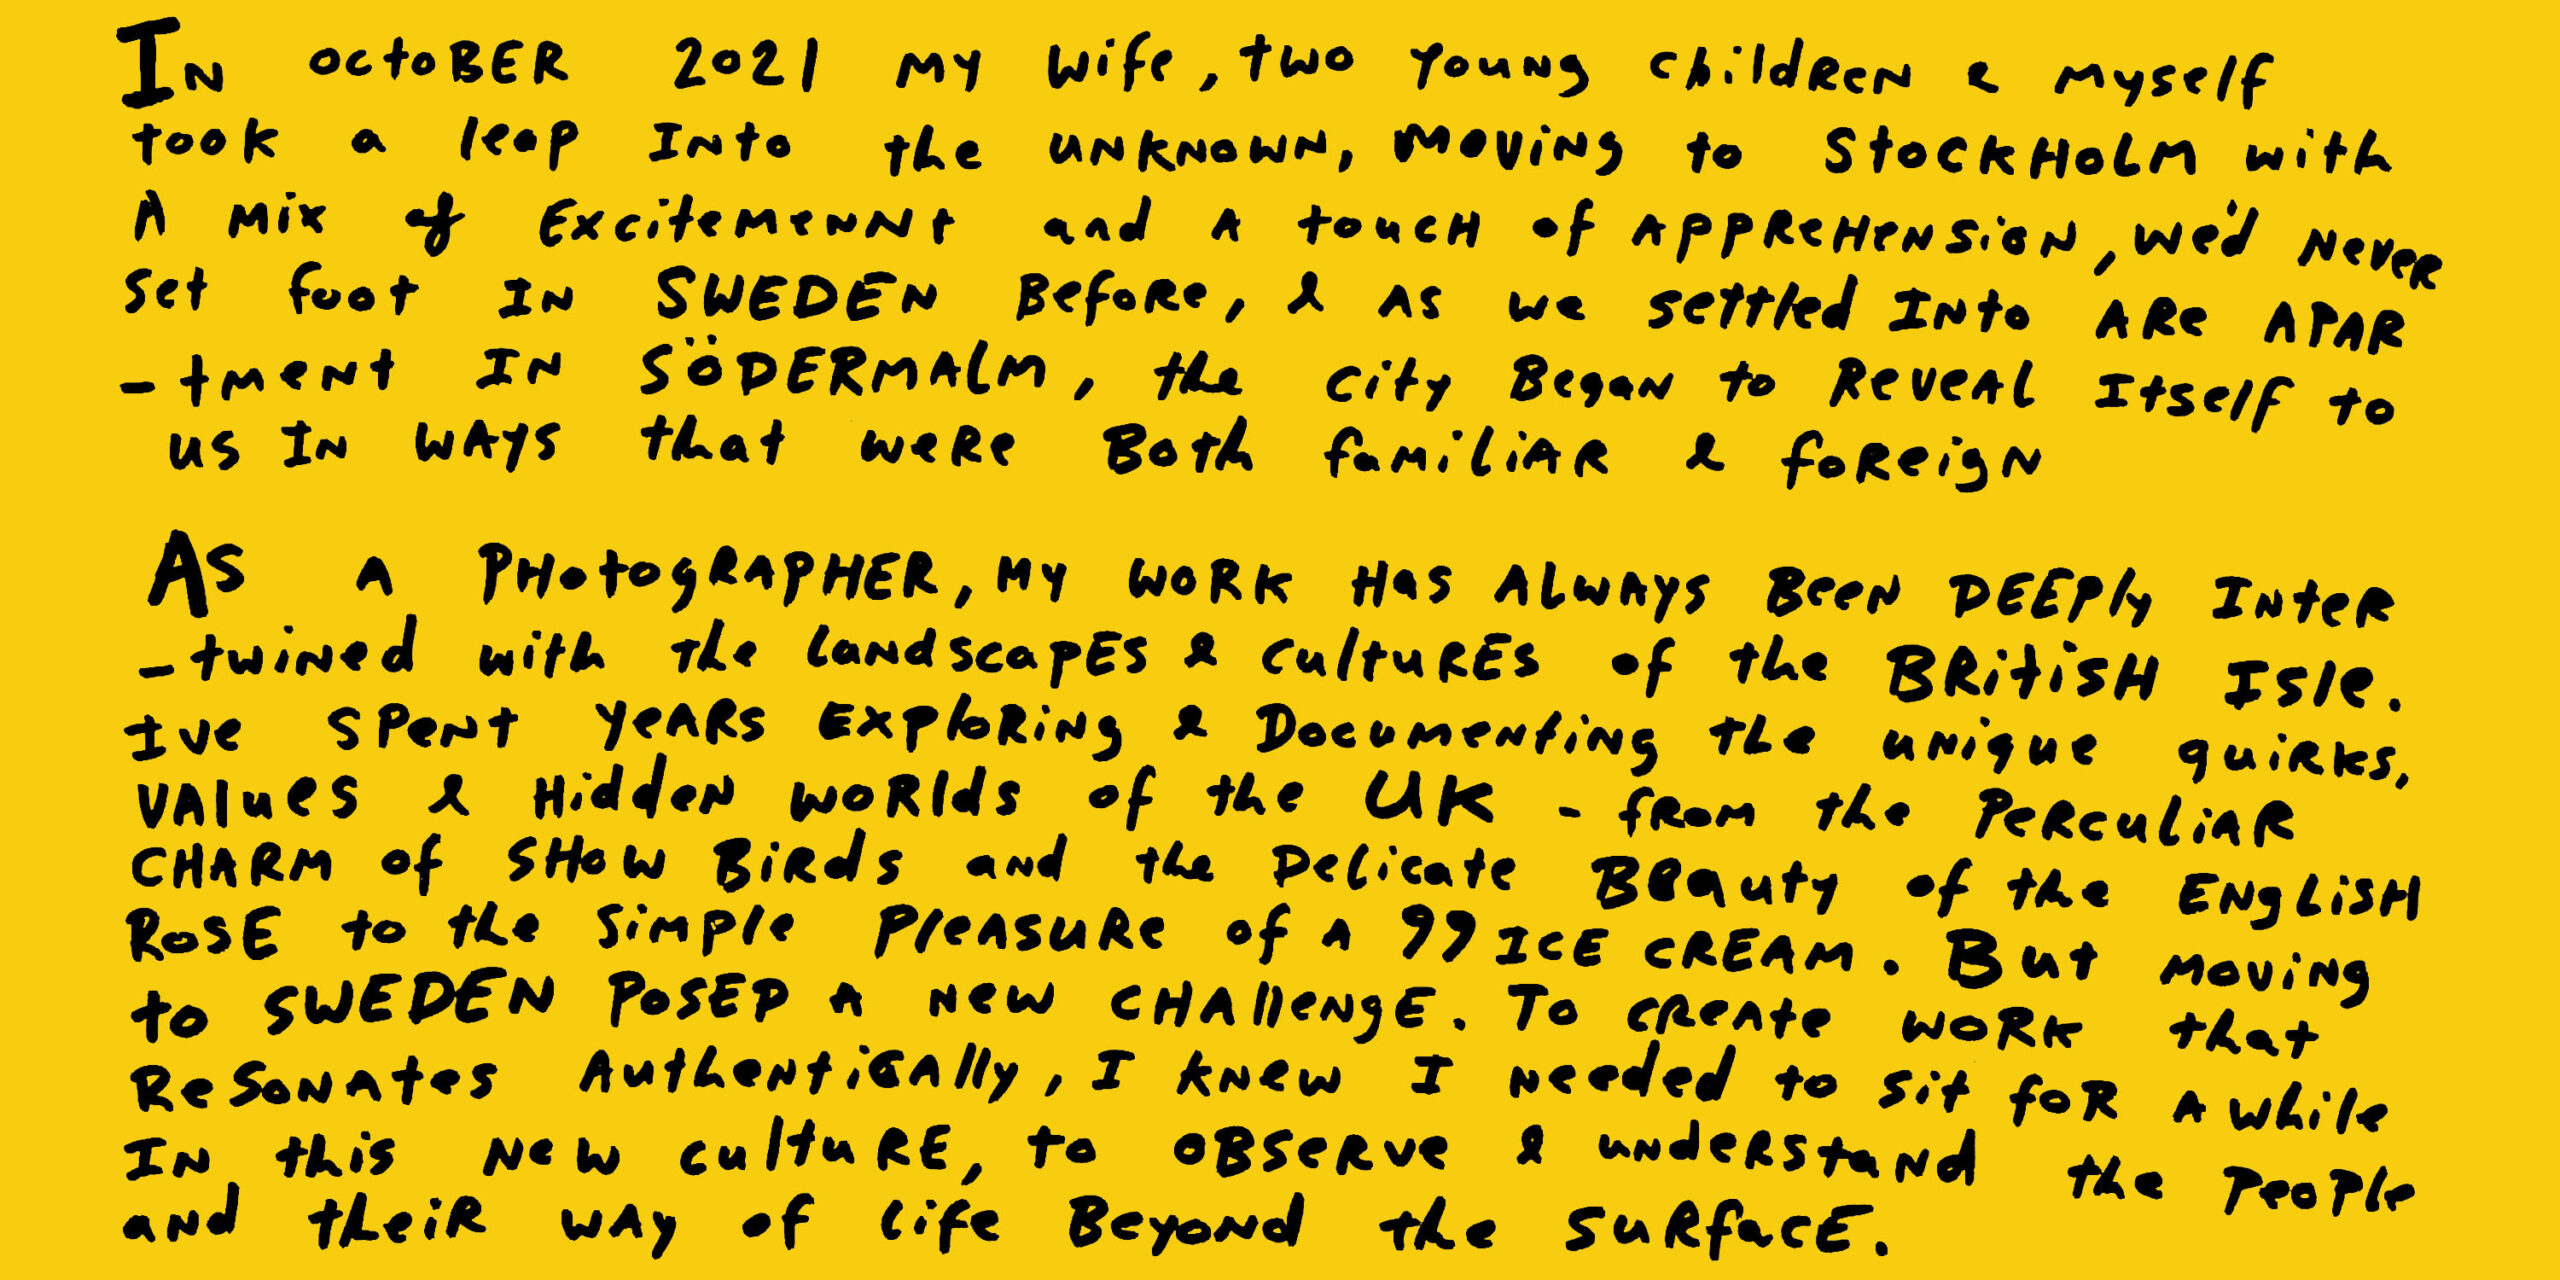 In OctoBER 2021 my wife, two young children & myself
took a leap Into the unknown, moving to Stockholm with
A mix of Excitemennt and a touch of Apprehension, we'd never
set foot in SWEDEN Before, & as we settled Into are Apar
-tment In SÖDERMALM, the city Began to Reveal Itself to
us in ways that were Both familiar & foreign
As a PHotogRAPHER, my work has always Been DEEPly Inter
-twined with the landscapes & cultures of the British Isle.
Ive spent years exploring & Documenting the unique quirks,
values & Hidden worlds of the UK - from the Perculiar
CHARM of Show Birds and the Delicate Beauty of the English
Rose to the simple pleasure of a 99 ICE CREAM. But moving
to SWEDEN PosED a new CHAllengE. To create work that
Resonates Authentically, I knew I needed to sit for a while
In this new cultuRE, to observe & understand the People
and their way of life Beyond the surface.